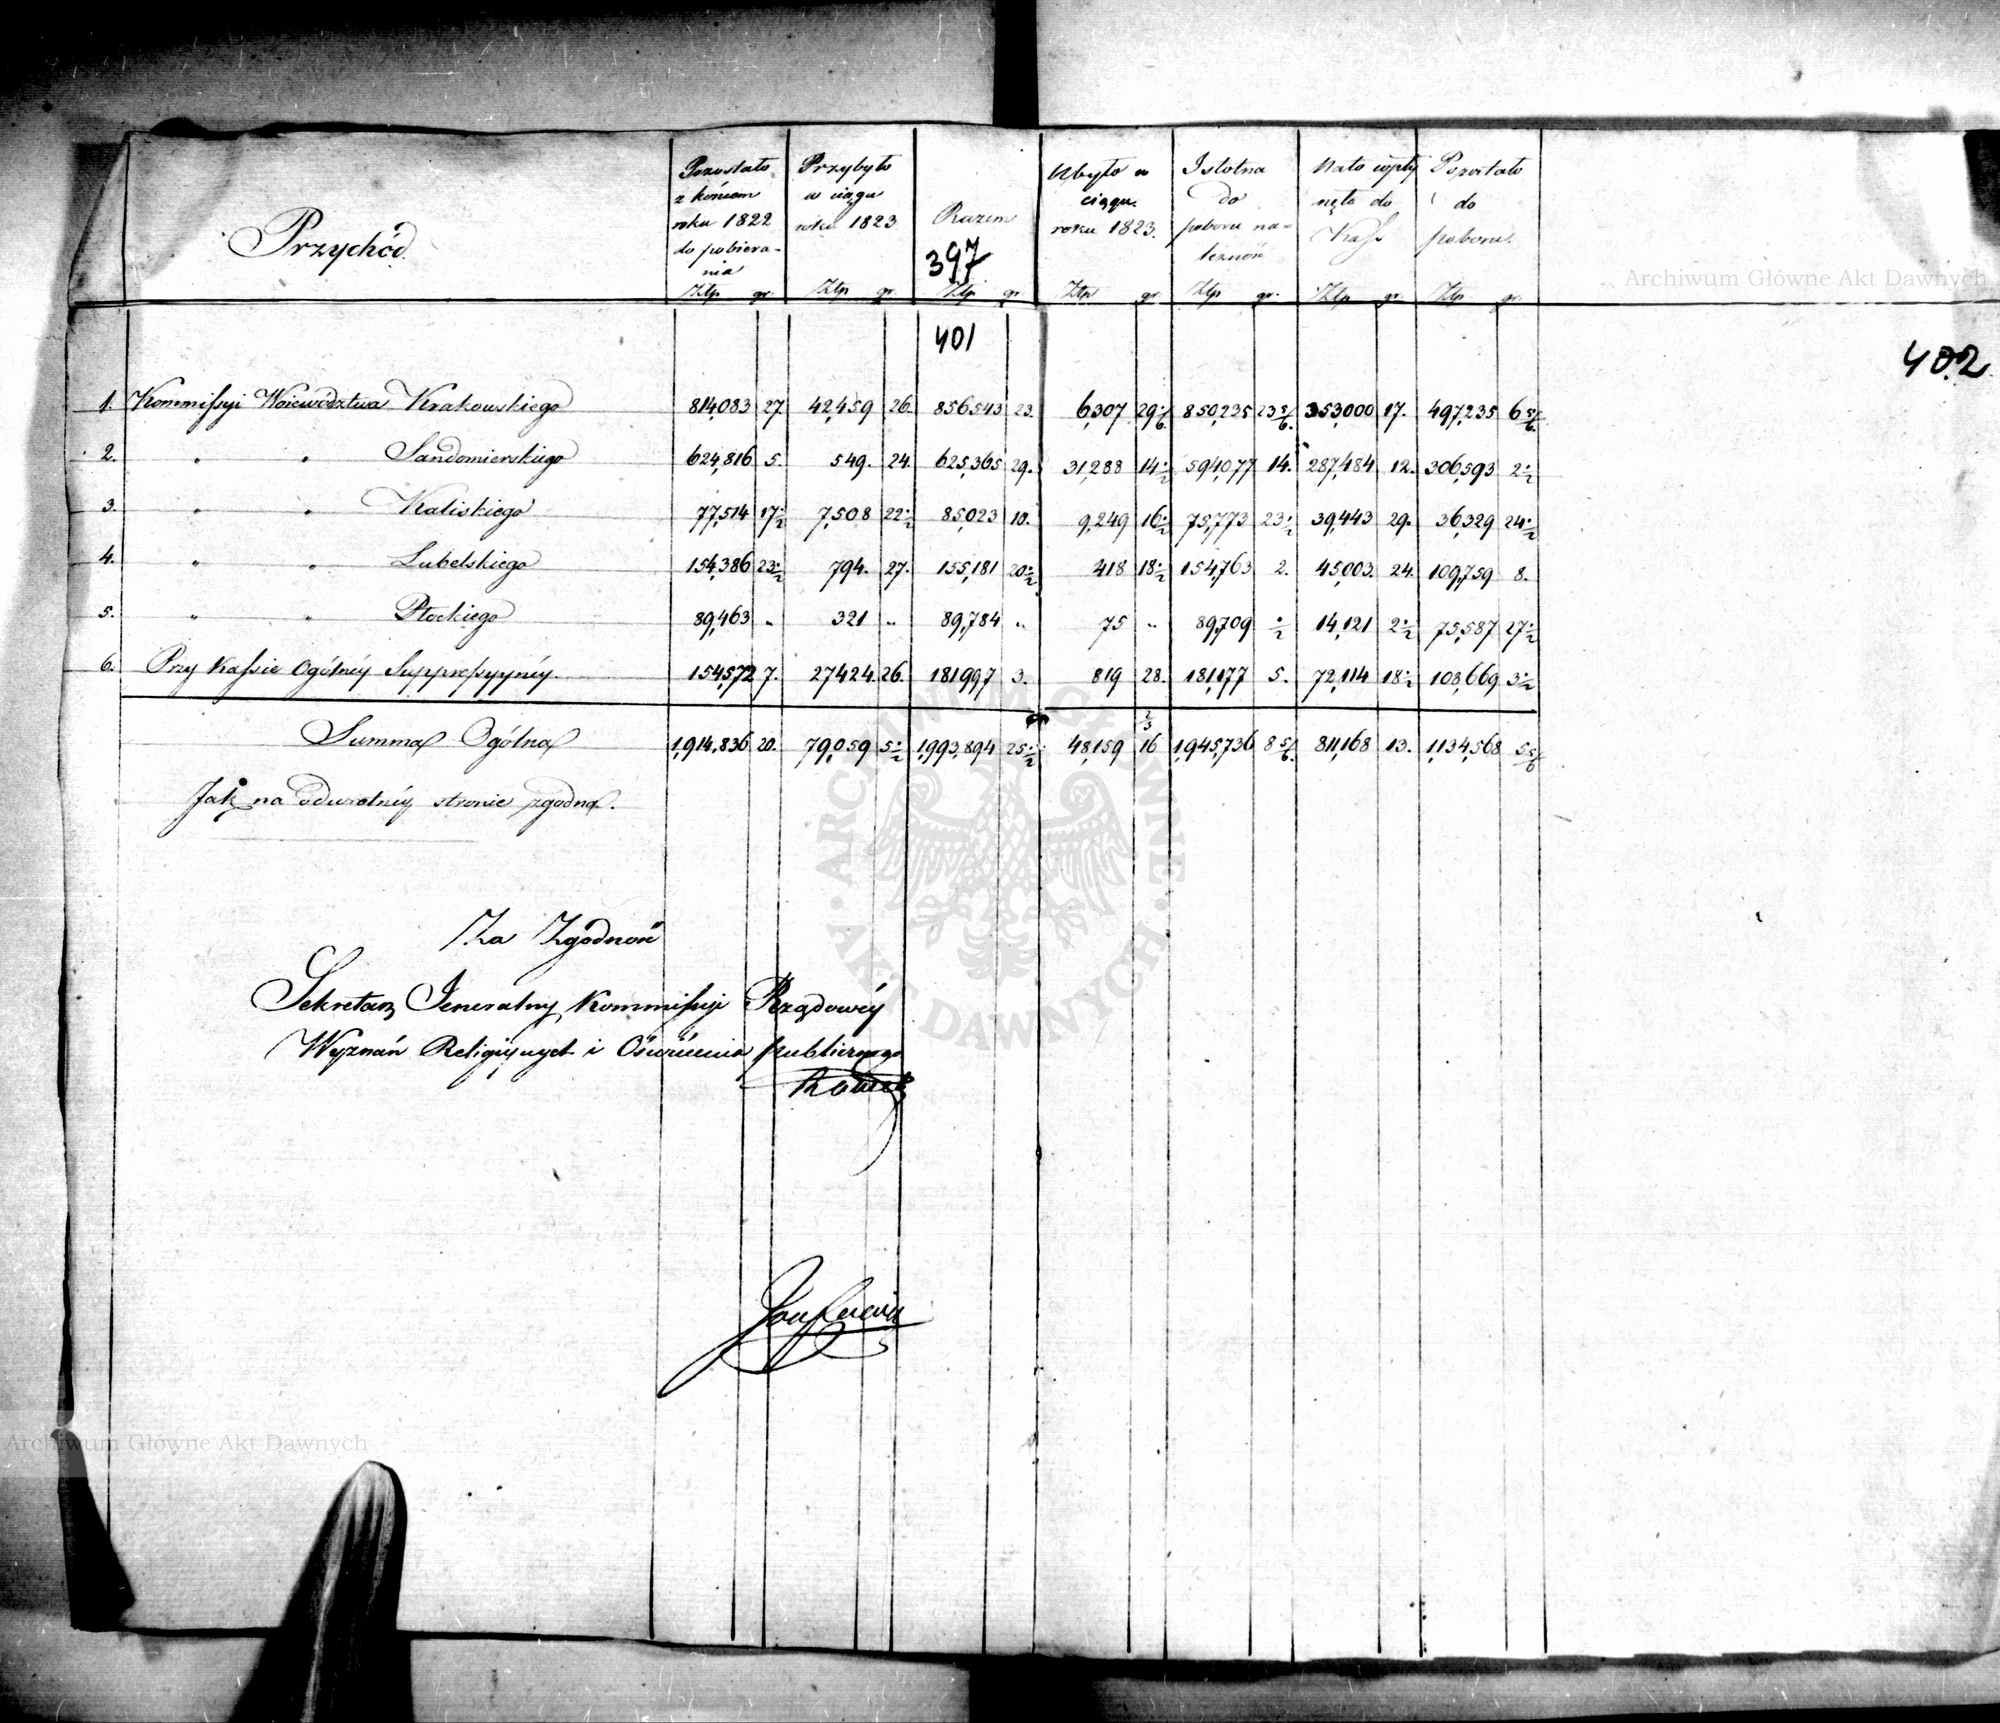 Przychód.
Pozostało z końcem roku 1822 do pobierania Złp gr.
Przybyło w ciągu roku 1823 Złp gr.
Razem Złp gr.
Ubyło w ciągu roku 1823. Złp gr.
Istotna do poboru należność Złp gr.
Na to wpłynęło do Kass Złp gr.
Pozostało do poboru. Złp gr.
397
401
402
1. Kommissyi Woiewództwa Krakowskiego 814,083 27. 42,459 26. 856,543 23. 6,307 29 1/6. 850,235 23 5/6. 353,000 17. 497,235 6 5/6.
2. " " Sandomierskiego 624,816 5. 549. 24. 625,365 29. 31,288 14 1/2 594,077 14. 287,484 12. 306,593 2 1/2
3. " " Kaliskiego 77,514 17 1/2 7,508 22 1/2 85,023 10. 9,249 16 1/2 75,773 23 1/2 39,443 29. 36,329 24 1/2
4. " " Lubelskiego 154,386 23 1/2 794. 27. 155,181 20 1/2 418 18 1/2 154,763 2. 45,003. 24. 109,759 8.
5. " " Płockiego 89,463 " 321 " 89,784 " 75 " 89,709 1/2 14,121 2 1/2 75,587 27 1/2
6. Przy Kassie Ogólnéy Suppressyynéy. 154,572 7. 27,424. 26. 181,997 3. 819 28. 181,177 5. 72,114 18 1/2 108,669 3 1/2
Summa Ogólna 1,914,836 20. 79,059 5 1/2 1,993,894 25 1/2 48,159 16 2/3 1,945,736 8 5/6. 811,168 13. 1,134,568 5 5/6
Jak na odwrotnéy stronie zgodna.
Za Zgodność
Sekretarz Jeneralny Kommissyi Rządowéy
Wyznań Religiynych i Oświecenia publicznego
Archiwum Główne Akt Dawnych
Archiwum Główne Akt Dawnych
ARCHIWUM GŁÓWNE · AKT DAWNYCH ·